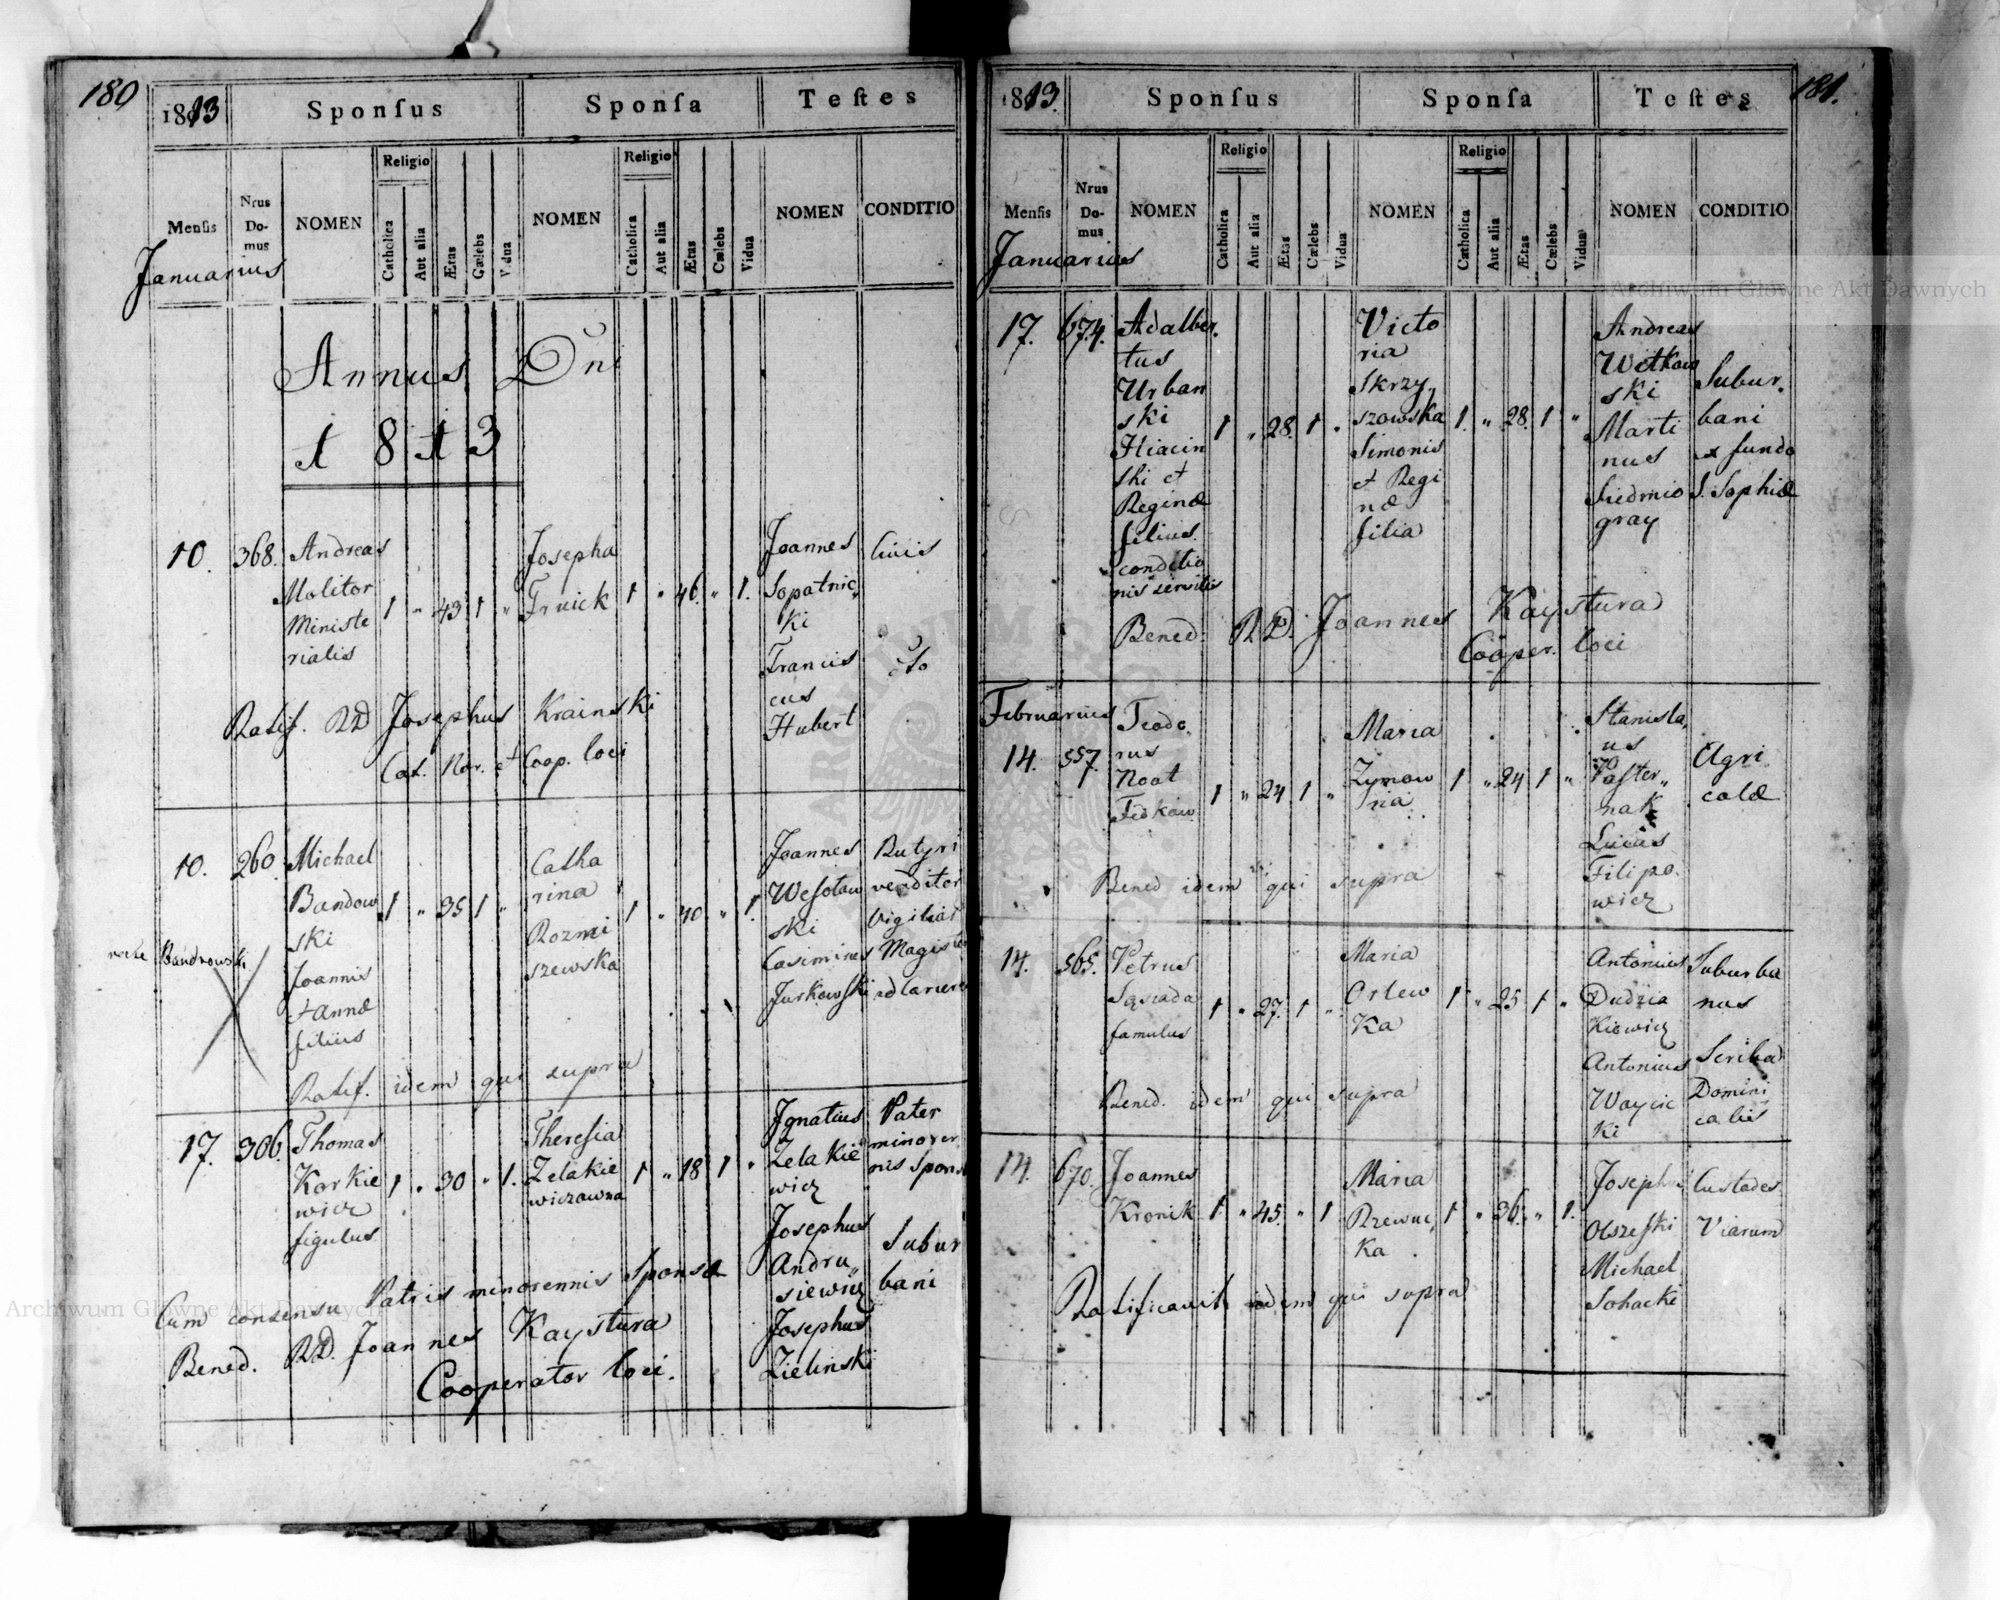 180
1813
Sponsus
Sponsa
Testes
Mensis
Nrus Domus
NOMEN
Religio
Catholica
Aut alia
Ætas
Cælebs
Vidua
NOMEN
Religio
Catholica
Aut alia
Ætas
Cælebs
Vidua
NOMEN
CONDITIO
Januarius
Annus Dni
1813
10. 368. Andreas
Molitor
Ministe
rialis
1 " 43 1 "
Josepha
Fruick
1 " 46 " 1.
Joannes
Sopatnic,,
ki
Francis
cus
Hubert
Civis
Ratif. RD Josephus Krainski
Cat. Nor. et Coop. loci
10. 260. Michael
Bandow
ski
Joannis
et Annæ
filius
recte Bandrowski
1 " 35 1 "
Catha
rina
Rozmi
szewska
1 " 40 " 1
Joannes
Wesołow
ski
Casimirus
Jurkowski
Butyri
venditor
Vigiliar
Magister
ad carceres
Ratif. idem qui supra
17. 306. Thomas
Korkie
wicz
figulus
1 " 30 " 1.
Theresia
Zelakie
wiczowna
1 " 18 1 "
Ignatius
Zelakie
wicz
Josephus
Andru,,
siewicz
Josephus
Zielinski
Pater
minoren
nis Sponsæ
Subur
bani
Cum consensu Patris minorennis Sponsæ
Bened. RD. Joannes Kaystura
Cooperator loci.
181.
1813.
Sponsus
Sponsa
Testes
Mensis
Nrus Domus
NOMEN
Religio
Catholica
Aut alia
Ætas
Cælebs
Vidua
NOMEN
Religio
Catholica
Aut alia
Ætas
Cælebs
Vidua
NOMEN
CONDITIO
Januarius
17. 674. Adalber,,
tus
Urban
ski
Hiacin
thi et
Reginæ
filius
conditio
nis servilis
1 " 28. 1 "
Victo
ria
Skrzy,,
szowska
Simonis
et Regi
næ
filia
1. " 28. 1 "
Andreas
Witkow
ski
Marti
nus
Siedmio
gray
Subur,,
bani
ex fundo
S. Sophiæ
Bened. RD. Joannes Kaystura
Cooper. loci
Februarius
14. 557. Teodo,,
rus
Noat
Fedkow
1 " 24 1 "
Maria
Zymow
nia
1 " 24 1 "
Stanisla,,
us
Paster,,
nak
Lucas
Filipo,,
wicz
Agri
colæ
Bened idem qui supra
14. 565. Petrus
Sąsiada
famulus
1 " 27. 1 "
Maria
Orlew
ka
1 " 25 1 "
Antonius
Dudzia
kiewicz
Antonius
Woycic
ki
Suburba
nus
Scriba
Domini
calis
Bened. idem qui supra
14. 670. Joannes
Kronik
1. " 45. " 1
Maria
Rzewuc,,
ka
1 " 36. " 1.
Josephus
Olszeski
Michael
Sohacki
Custodes
Viarum
Ratificavit idem qui supra
Archiwum Główne Akt Dawnych
Archiwum Główne Akt Dawnych